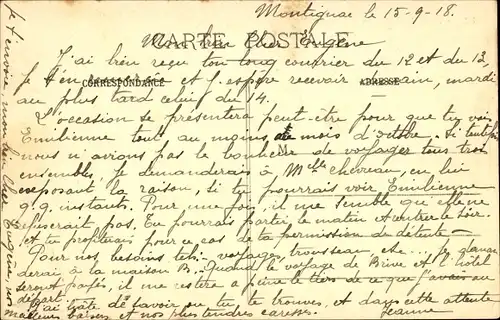 Montignac le 15-9-18.
CARTE POSTALE
Mon bien cher Eugène
J'ai bien reçu ton long courrier du 12 et du 13,
je t'en et j'espère recevoir demain, mardi
CORRESPONDANCE
ADRESSE
au plus tard celui du 14.
L'occasion se présentera peut-être pour que tu vois
Emilienne tout au moins au mois d'octbre. Si toutefois
nous n'avions pas le bonheur de voyager tous trois
ensembles, je demanderais à Melle chevreau, en lui
exposant la raison, si tu pourrais voir Emilienne
q.q. instants. Pour une fois, il me semble qu'elle ne
refuserait pas. Tu pourrais partir, le matin et rentrer le soir.
et tu profiterais pour ce cas de ta permission de détente -
Pour nos besoins tels: voyages, trousseau etc... je deman
derai, à la maison B.. Quand le voyage de Brive et l'hôtel
seront payés, il me restera à peine le tiers de ce que j'avais au
départ.
J'ai hâte de savoir où tu te trouves, et dans cette attente
meilleurs baisers et nos plus tendres caresses. Jeanne
Je t'envoie mon bien cher Eugène nos